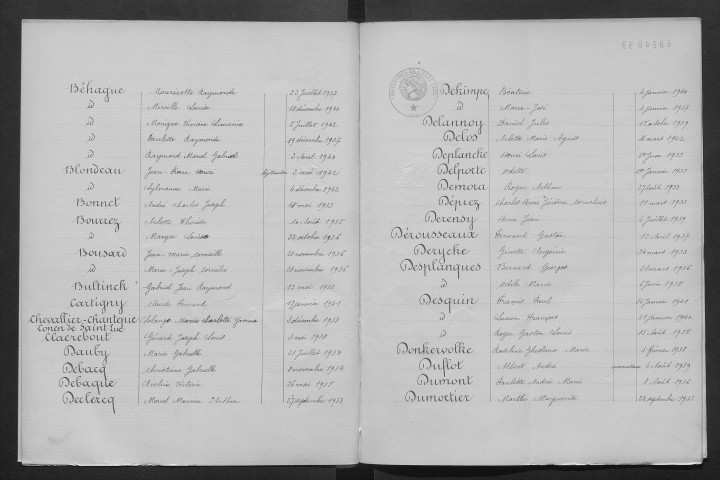 Béhague Mauricette Raymonde 22 Juillet 1933
id Mireille Louise 18 décembre 1940
id Monique 5 Juillet 1942
id Paulette Raymonde 19 décembre 1937
id Raymond Marcel Gabriel 3 Août 1940
Blondeau Jean Pierre Henri 2 mai 1942
id Sylviane Marie 4 décembre 1942
Bonnet André Charles Joseph 18 mai 1933
Bourrez Arlette 10 Août 1935
id Maryse Louise 22 octobre 1936
Bousard Jean Marie Corneille 21 novembre 1936
id Marie Joseph 21 novembre 1936
Bultinck Gabriel Jean Raymond 12 mai 1933
Cartigny Claude Fernand 17 janvier 1941
Chevallier-Chantepie Solange Marie Charlotte Yvonne 2 décembre 1933
Conen de Saint Luc
Claerebout Gérard Joseph Louis 3 mai 1938
Dauby Marie Gabrielle 23 Juillet 1934
Debacq Christiane Gabrielle 8 novembre 1934
Debague Evelina Victoria 26 mai 1935
Declercq Marcel Maurice Arthur 27 septembre 1933
Dekimpe Béatrice 4 janvier 1940
id Marie José 4 janvier 1937
Delannoy Daniel Jules 15 octobre 1939
Delos Arlette Marie Agnès 16 mars 1942
Deplancke Henri Louis 1er Juin 1933
Delporte Odette 1er Janvier 1935
Demora Roger Arthur 27 Août 1933
Déprez Charles Henri Jérôme Cornelius 11 mars 1939
Derensy Jean 6 Juillet 1939
Dérousseaux Fernand Gaston 12 Avril 1937
Derycke Ginette Eugénie 26 mars 1933
Desplanques Bernard Georges 31 mars 1936
id Odile Marie 6 Juin 1938
Desquin Francis Paul 24 Janvier 1941
id Lucien François 17 Janvier 1940
id Roger Gaston Louis 15 Août 1938
Donkervolke Roseline Ghislaine Marie 4 février 1938
Duflot Albert André 4 Août 1939
Dumont Paulette Andrée Marie 8 Août 1936
Dumortier Marthe Marguerite 22 septembre 1933